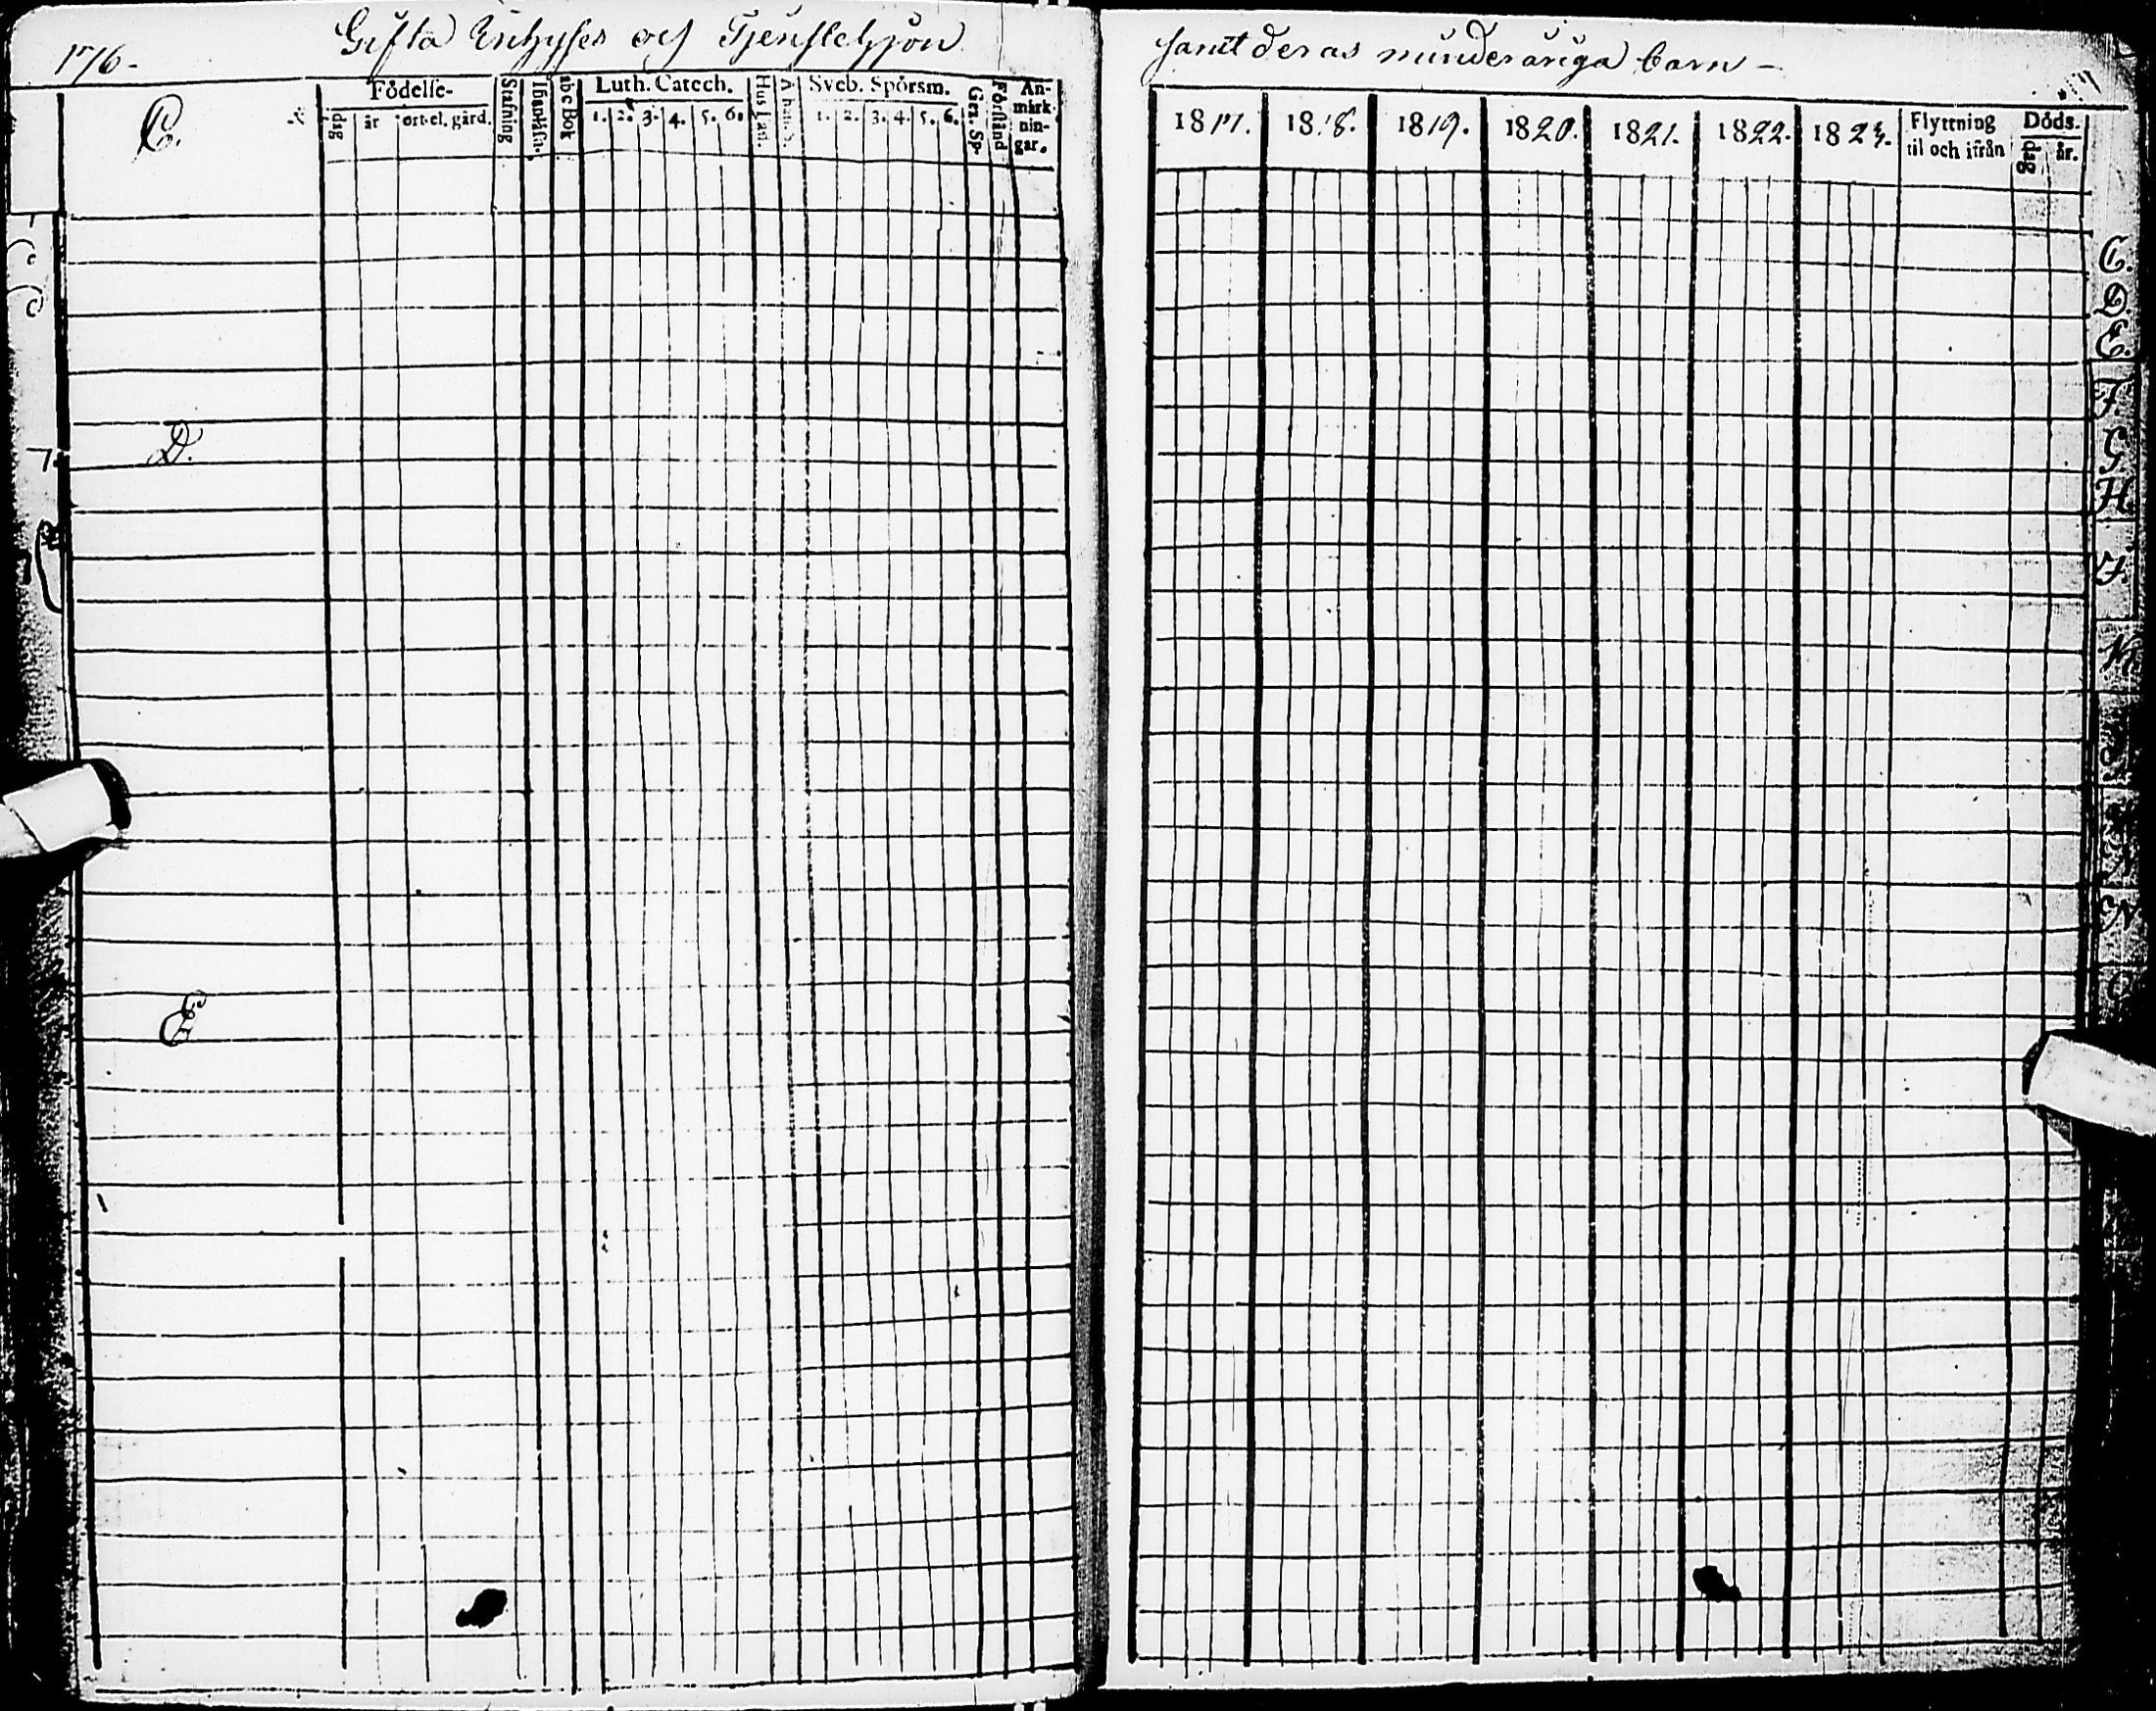 176-
Gifta Inhyses och Tjenstehjon
C.
Födelse-
dag
år
ort el. gård.
Stafning
abc Bok
Luth. Catech.
1. 2. 3. 4. 5. 6.
Hus
Sveb. Spörsm.
1. 2. 3. 4. 5. 6.
Gez. Sp.
Förstånd
An-
märk-
nin-
gar.
D.
E
samt deras minderåriga barn-
1817. 1818. 1819. 1820. 1821. 1822. 1823.
Flyttning
til och ifrån
Döds-
dag
år.
C.
D.
E.
F.
G
H